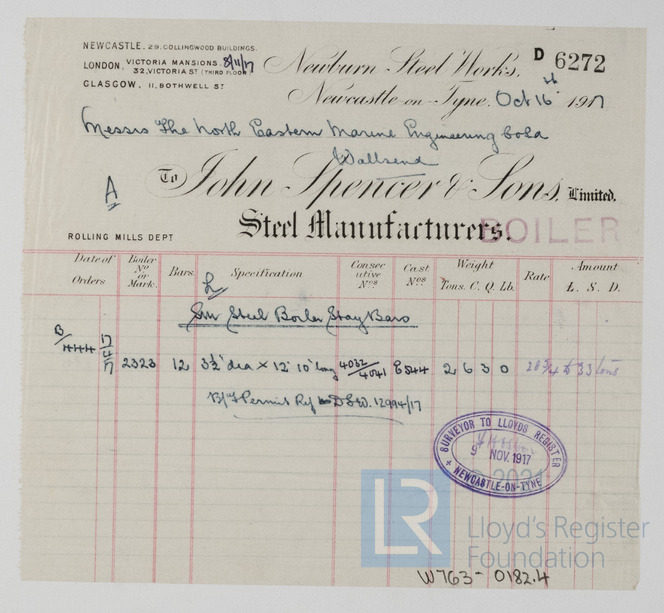 NEWCASTLE. 29. COLLINGWOOD BUILDINGS.
LONDON, VICTORIA MANSIONS. 8/11/17
32, VICTORIA ST (THIRD FLOOR)
GLASGOW, 11, BOTHWELL ST
D 6272
Newburn Steel Works,
Newcastle-on-Tyne. Oct 16th 1917
Messrs The North Eastern Marine Engineering Co Ld
Wallsend
A
To John Spencer & Sons, Limited.
Steel Manufacturers.
BOILER
ROLLING MILLS DEPT
Date of Orders Boiler No or Mark. Bars. Specification Consecutive Nos Cast Nos Weight Tons. C. Q. Lb. Rate Amount £. S. D.
Steel Boiler Stay Bars
B/ 17/4/17 2323 12 3½" dia x 12' 10" long 4032/4041 2 6 3 0 tons
Permit 12994/17
SURVEYOR TO LLOYDS REGISTER
9 NOV. 1917
NEWCASTLE-ON-TYNE
© 2021
LR
Lloyd's Register
Foundation
W763-0182.4